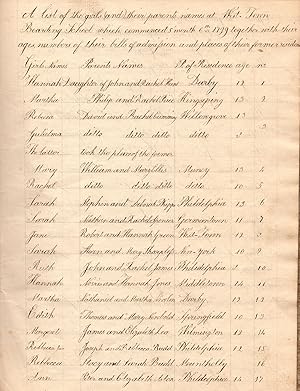 A list of the girls and their parents names at West-Town
Boarding School which commenced 5 month 6th 1799 together with their
ages, number of their bills of admission and places of their former residence
Girls Names Parents Names Pl of Residence age no
Hannah Daughter of John and Rachel Hunt Darby 12 1
Martha Philip and Rachel Kingsessing 13 2
Rebecca David and Rachel Willongrove 13
Gulielma ditto ditto ditto 3
The latter took the place of the former
Mary William and Mary Ellis Muncy 13 4
Rachel ditto ditto ditto 10 5
Sarah Stephen and Philadelphia 13 6
Sarah Nathan and Rachel Jones Germantown 11 7
Jane Robert and Hannah Green West-Town 13 8
Sarah and Mary New-York 10 9
Ruth John and Rachel James Philadelphia 10
Hannah and Hannah Jones Middletown 14 11
Martha Nathaniel and Martha Darby 13 12
Edith Thomas and Mary Newbold Springfield 10 13
Margaret James and Elizabeth Lea Wilmington 13 14
Rebecca Joseph and Rebecca Budd Philadelphia 12 15
Rebecca and Sarah Budd Mountholly 16
Ann and Elizabeth Philadelphia 14 17